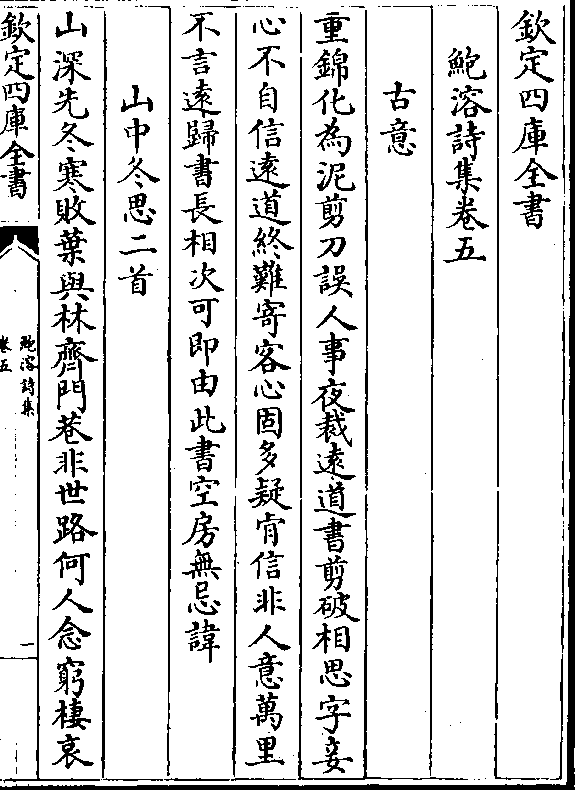 欽定四庫全書
鮑溶詩集卷五
古意
重錦化為泥剪刀誤人事夜裁遠道書剪破相思字妾
心不自信遠道終難寄客心固多疑肯信非人意萬里
不言遠歸書長相次可即由此書空房無忌諱
山中冬思二首
山深先冬寒敗葉與林齊門巷非世路何人念窮棲哀
欽定四庫全書
鮑溶詩集
卷五
一